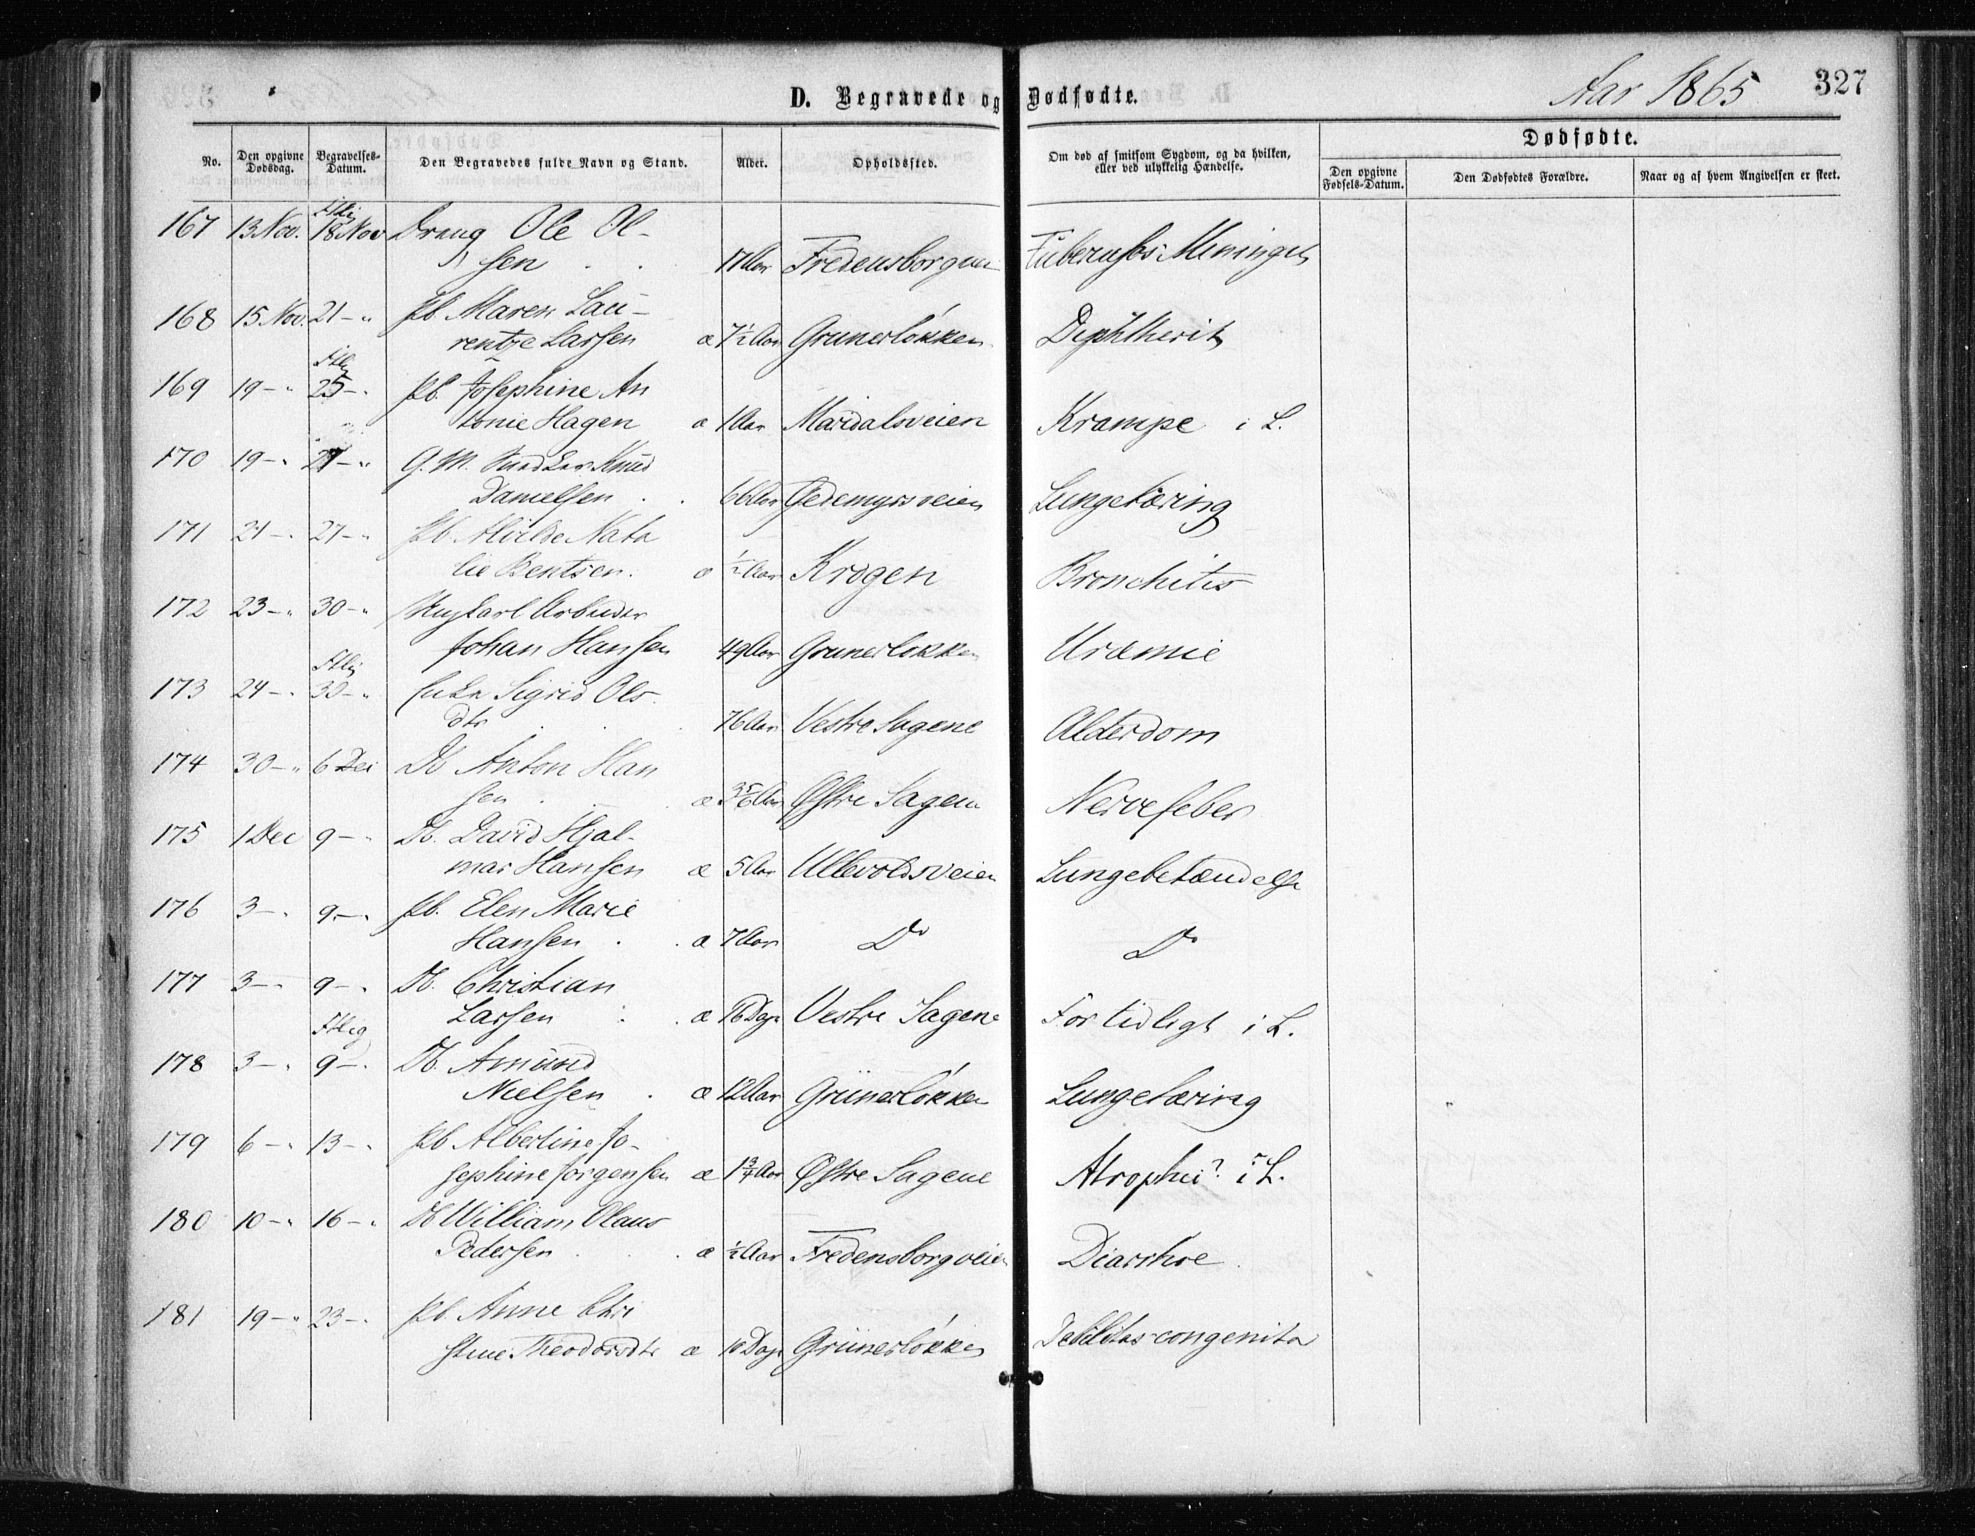 D. Begravede og Dødfødte.
Aar 1865
327
No.
Den opgivne Dødsdag.
Begravelses-Datum.
Den Begravedes fulde Navn og Stand.
Alder.
Opholdssted.
Om død af smitsom Sygdom, og da hvilken, eller ved ulykkelig Hændelse.
Dødfødte.
Den opgivne Fødsels-Datum.
Den Dødfødtes Forældre.
Naar og af hvem Angivelsen er skeet.
167 13 Nov. 18 Nov Dreng Ole Ol-
sen 17 Aar Fredensborgvei
168 15 Nov. 21 - " Pb. Maren Lau-
rentze Larsen æ 7½ Aar Grunerløkken Diphtherit
169 19 - " 25 - " Pb. Josephine An
tonie Hagen æ 1 Aar Maridalsveien Krampe i L.
170 19 - " 27 - " G. M. Knud
Danielsen 66 Aar Gedemyrsveien Lungetæring
171 21 - " 27 - " Pb. Nata
lie Bentsen. æ ½ Aar Krogen Bronchitis
172 23 - " 30 - " Arbeider
Johan Hansen 49 Aar Grunerløkken Uræmie
173 24 - " 30 - " Enke Sigrid Ols
dtr 76 Aar Vestre Sagene Alderdom
174 30 - " 6 Dec Db Anton Han
sen æ 3 5/6 Aar Østre Sagene Nervefeber
175 1 Dec 9 - " Db. David Hjal-
mar Hansen æ 5 Aar Ullevoldsveien Lungebetændelse
176 3 - " 9 - " Pb. Elen Marie
Hansen æ 7 Aar Do Do
177 3 - " 9 - " Db. Christian
Larsen æ 16 Dage Vestre Sagene For tidligt i L.
178 3 - " 9 - " Db. Amund
Nielsen æ 12 Aar Grünerløkken Lungetæring
179 6 - " 13 - " Pb Albertine Jo-
sephine Jørgensen æ 1¾ Aar Østre Sagene Atrophi? i L.
180 10 - " 16 - " Db William Olaus
Pedersen æ ½ Aar Fredensborgveien Diarrhoe
181 19 - " 23 - " Pb. Anne Chri
stine Theodorsdtr æ 10 Dage Grünerløkken Debilitas congenita